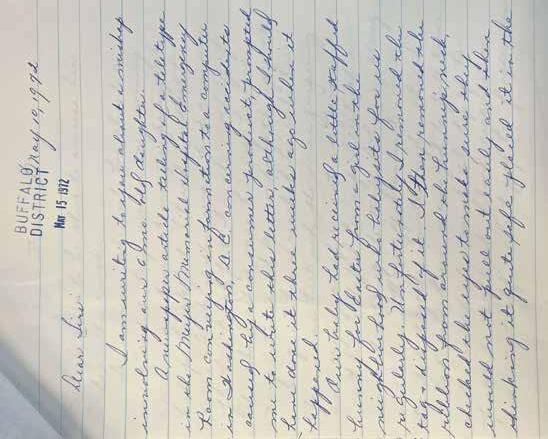 BUFFALO
DISTRICT
MAY 15 1972
May 10, 1972
Dear Sirs:
I am writing to you about a mishap
involving our 9 mo. old daughter.
A newspaper article telling of a teletype
in the Meyer Memorial Hospital Emergency
Room conveying information to a computer
in Washington D.C. concerning accidents
caused by a consumer product prompted
me to write this letter although I should
have done it three weeks ago when it
happened.
Our baby had received a little stuffed
bunny for Easter from a girl in the
neighborhood who baby sits for us
regularly. Unfortunately I removed the
tag & disposed of it. I then removed the
ribbon from around the bunny's neck,
checked the eyes to make sure they
would not pull out easily and then
thinking it quite safe placed it in the